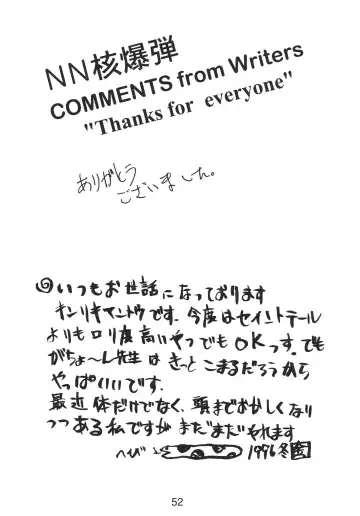 NN核爆弾
COMMENTS from Writers
"Thanks for everyone"
ありがとう
ございました。
いつもお世話になっております
キンリキマントウです。今度はセイントテール
よりもロリ度高いやつでもOKっす。でも
がちょ〜ん先生はきっとこまるだろうから
やっぱいいです。
最近体だけでなく、頭までおかしくなり
つつある私ですがまだまだやれます
へび 1996冬
52